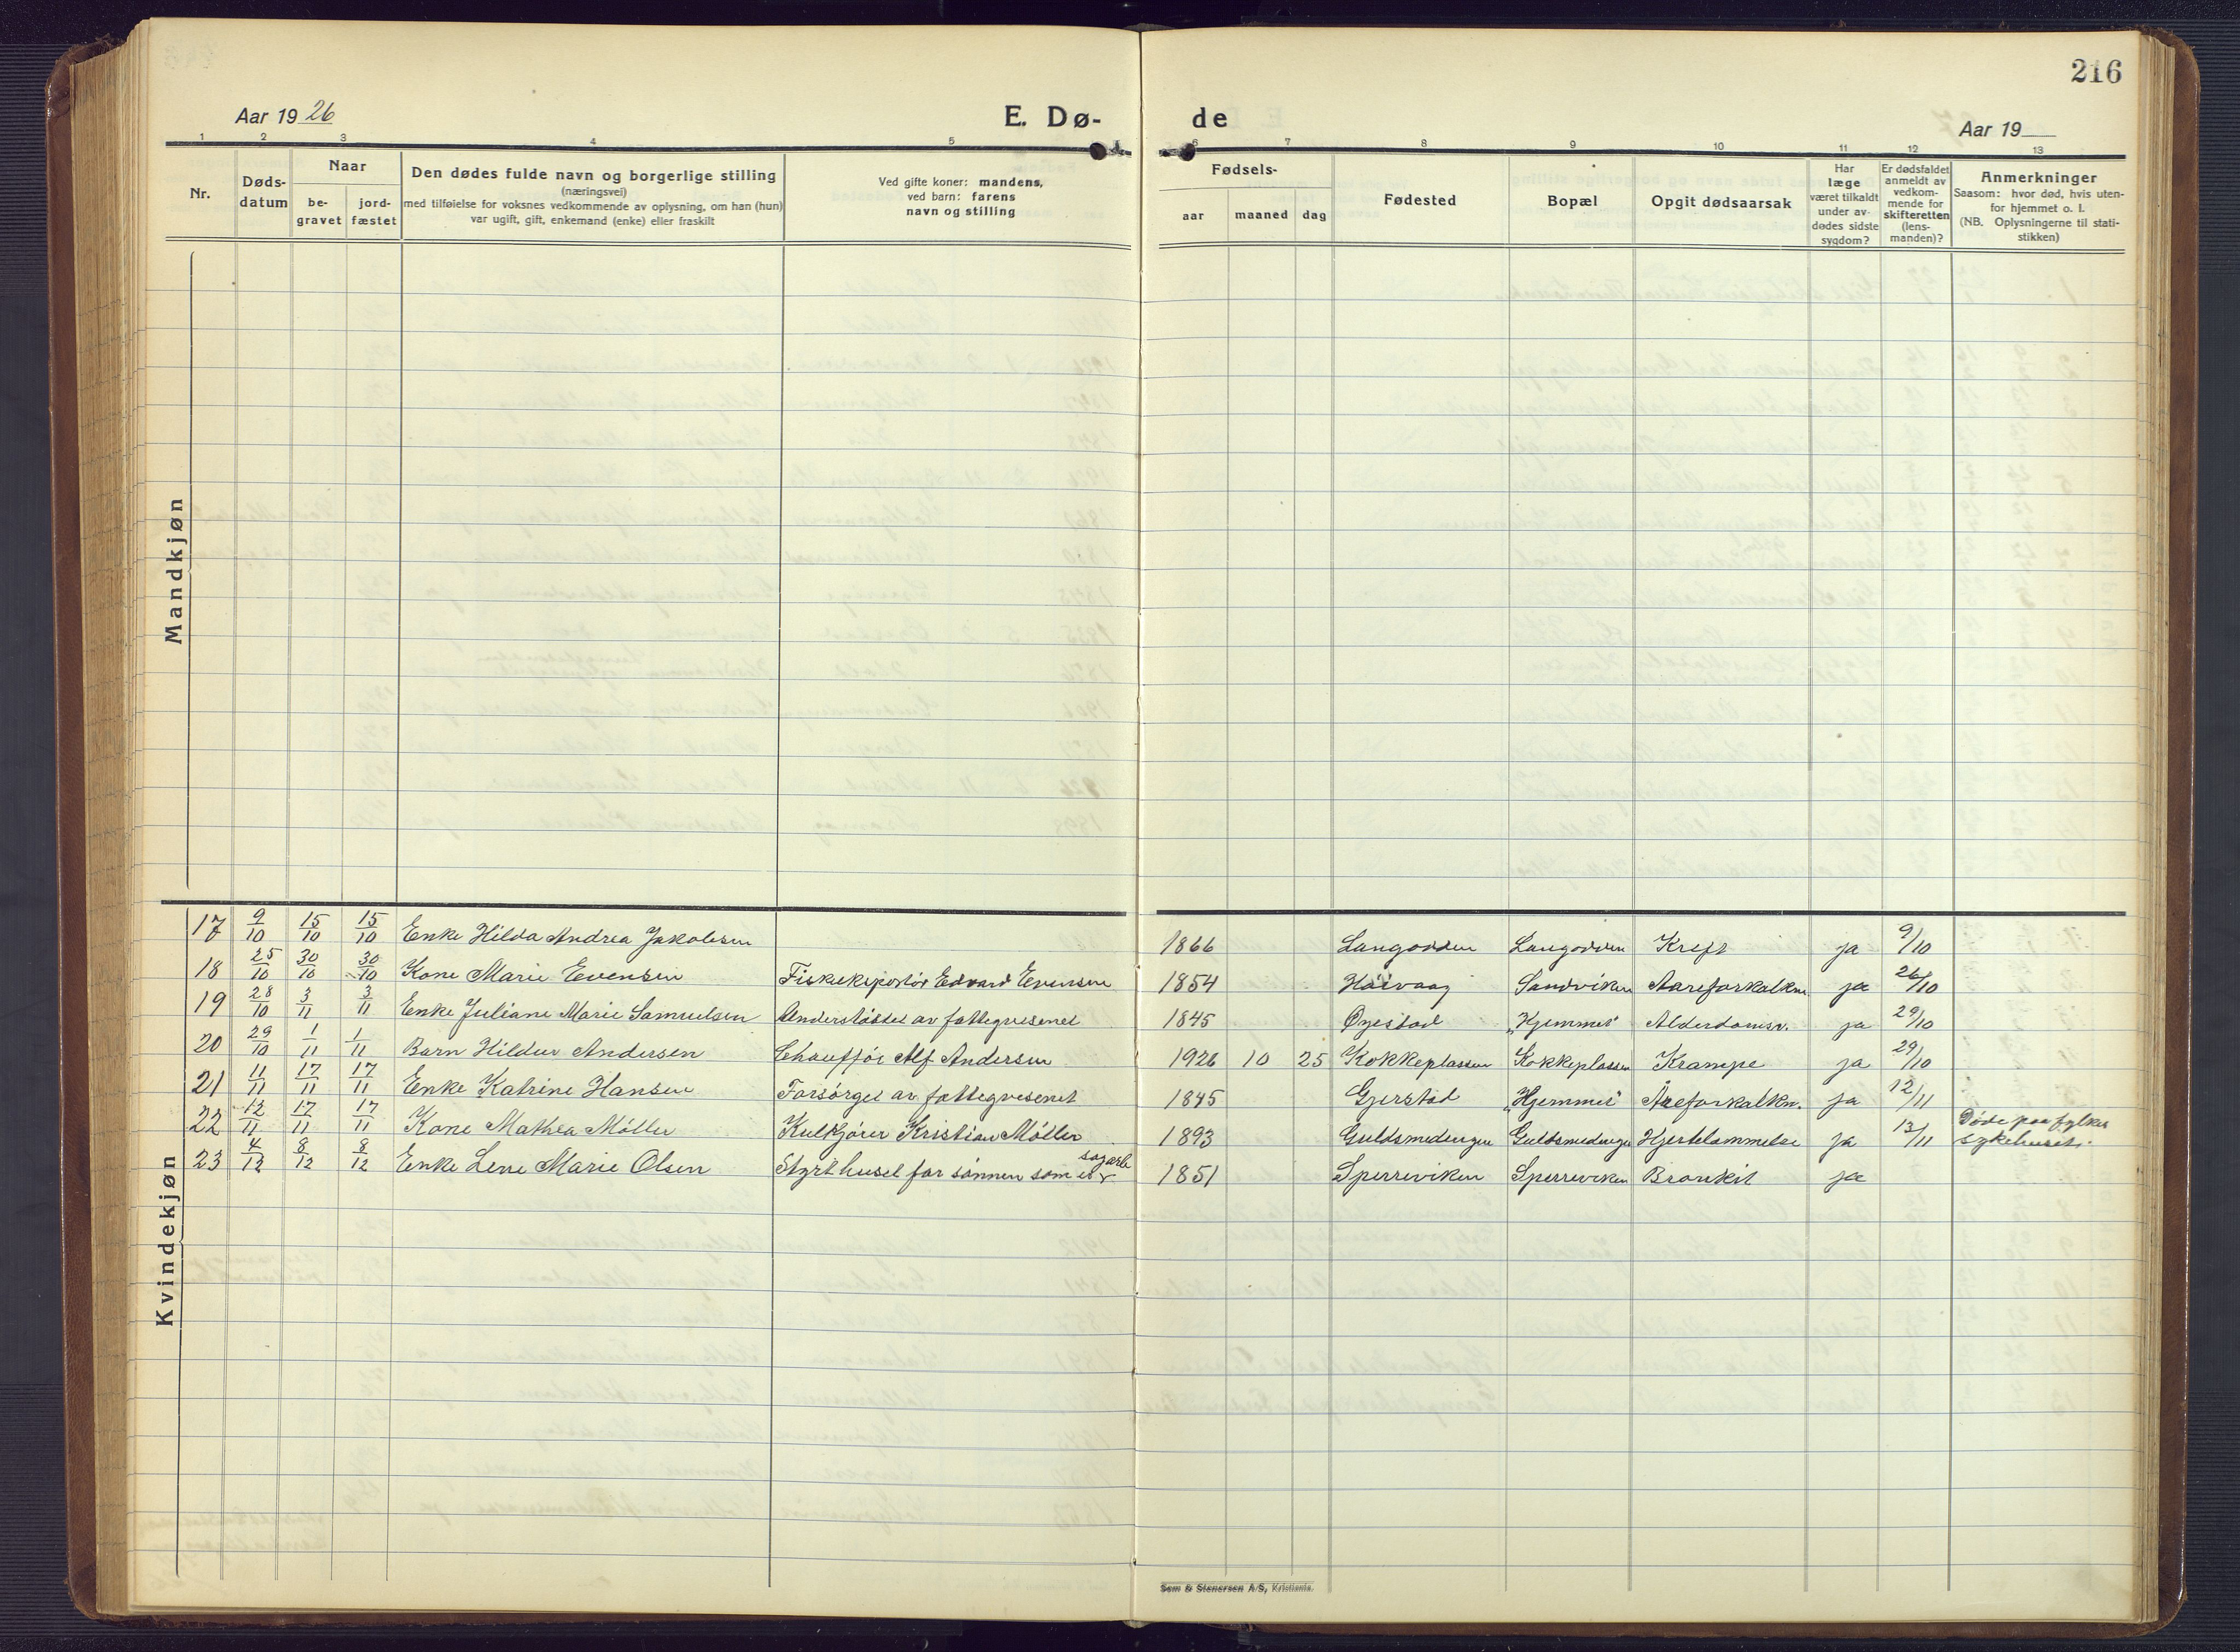 216
Aar 19 26
E. Dø-
de
Aar 19
1 2 3 4 5 6 7 8 9 10 11 12 13
Nr.
Døds-
datum
Naar
be-
gravet
jord-
fæstet
Den dødes fulde navn og borgerlige stilling
(næringsvei)
med tilføielse for voksnes vedkommende av oplysning, om han (hun)
var ugift, gift, enkemand (enke) eller fraskilt
Ved gifte koner: mandens,
ved barn: farens
navn og stilling
Fødsels-
aar
maaned
dag
Fødested
Bopæl
Opgit dødsaarsak
Har
læge
været tilkaldt
under av-
dødes sidste
sygdom?
Er dødsfaldet
anmeldt av
vedkom-
mende for
skifteretten
(lens-
manden)?
Anmerkninger
Saasom: hvor død, hvis uten-
for hjemmet o. l.
(NB. Oplysningerne til stati-
stikken)
Mandkjøn
Kvindekjøn
17 9/10 15/10 15/10 Enke Hilda Andrea Jakobsen 1866 Langodden Langodden Kreft ja 9/10
18 25/10 30/10 30/10 Kone Marie Evensen Fiskeksportör Edvard Evensen 1854 Höivaag Sandviken Aareforkalkn. ja 26/10
19 28/10 3/11 3/11 Enke Juliane Marie Samuelsen Understöttet av fattigvesenet 1845 Øyestad "Hjemmet" Alderdomsv. ja 29/10
20 29/10 1/11 1/11 Barn Hildur Andersen Chaufför Alf Andersen 1926 10 25 Kokkeplassen Kokkeplassen Krampe ja 29/10
21 11/11 17/11 17/11 Enke Katrine Hansen Forsörget av fattigvesenet 1845 Gjerstad "Hjemmet" Åreforkalkn. ja 12/11
22 12/11 17/11 17/11 Kone Mathea Möller Kulkjörer Kristian Möller 1893 Guldsmedengen Guldsmedengen Hjertelammelse ja 13/11 Döde paa fylkes
sykehuset.
23 4/12 8/12 8/12 Enke Lene Marie Olsen Styrt huset for sönnen som er sagarb 1851 Sperreviken Sperreviken Bronkit ja
Sem & Stenersen A/S, Kristiania.